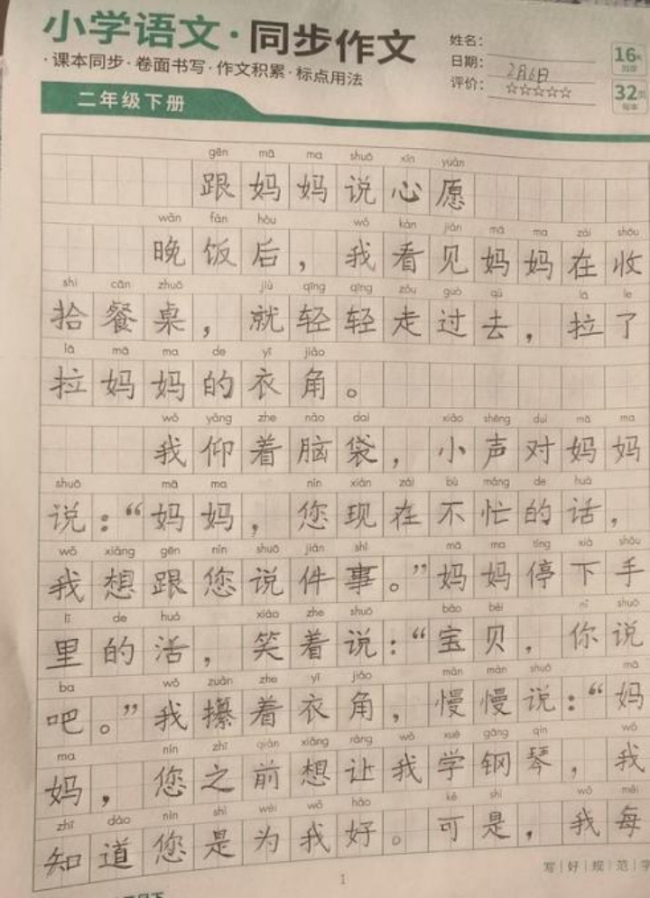 小学语文·同步作文
·课本同步·卷面书写·作文积累·标点用法
姓名：
日期：2月6日
评价：☆☆☆☆☆
16
32
二年级下册
gēn mā ma shuō xīn yuàn
跟妈妈说心愿
wǎn fàn hòu wǒ kàn jiàn mā ma zài shōu
晚饭后，我看见妈妈在收
shí cān zhuō jiù qīng qīng zǒu guò qù lā le
拾餐桌，就轻轻走过去，拉了
lā mā ma de yī jiǎo
拉妈妈的衣角。
wǒ yǎng zhe nǎo dai xiǎo shēng duì mā ma
我仰着脑袋，小声对妈妈
shuō mā ma nín xiàn zài bù máng de huà
说：“妈妈，您现在不忙的话，
wǒ xiǎng gēn nín shuō jiàn shì mā ma tíng xià shǒu
我想跟您说件事。”妈妈停下手
lǐ de huó xiào zhe shuō bǎo bèi nǐ shuō
里的活，笑着说：“宝贝，你说
ba wǒ zuàn zhe yī jiǎo màn màn shuō mā
吧。”我攥着衣角，慢慢说：“妈
ma nín zhī qián xiǎng ràng wǒ xué gāng qín wǒ
妈，您之前想让我学钢琴，我
zhī dào nín shì wèi wǒ hǎo kě shì wǒ měi
知道您是为我好。可是，我每
1
写|好|规|范|字